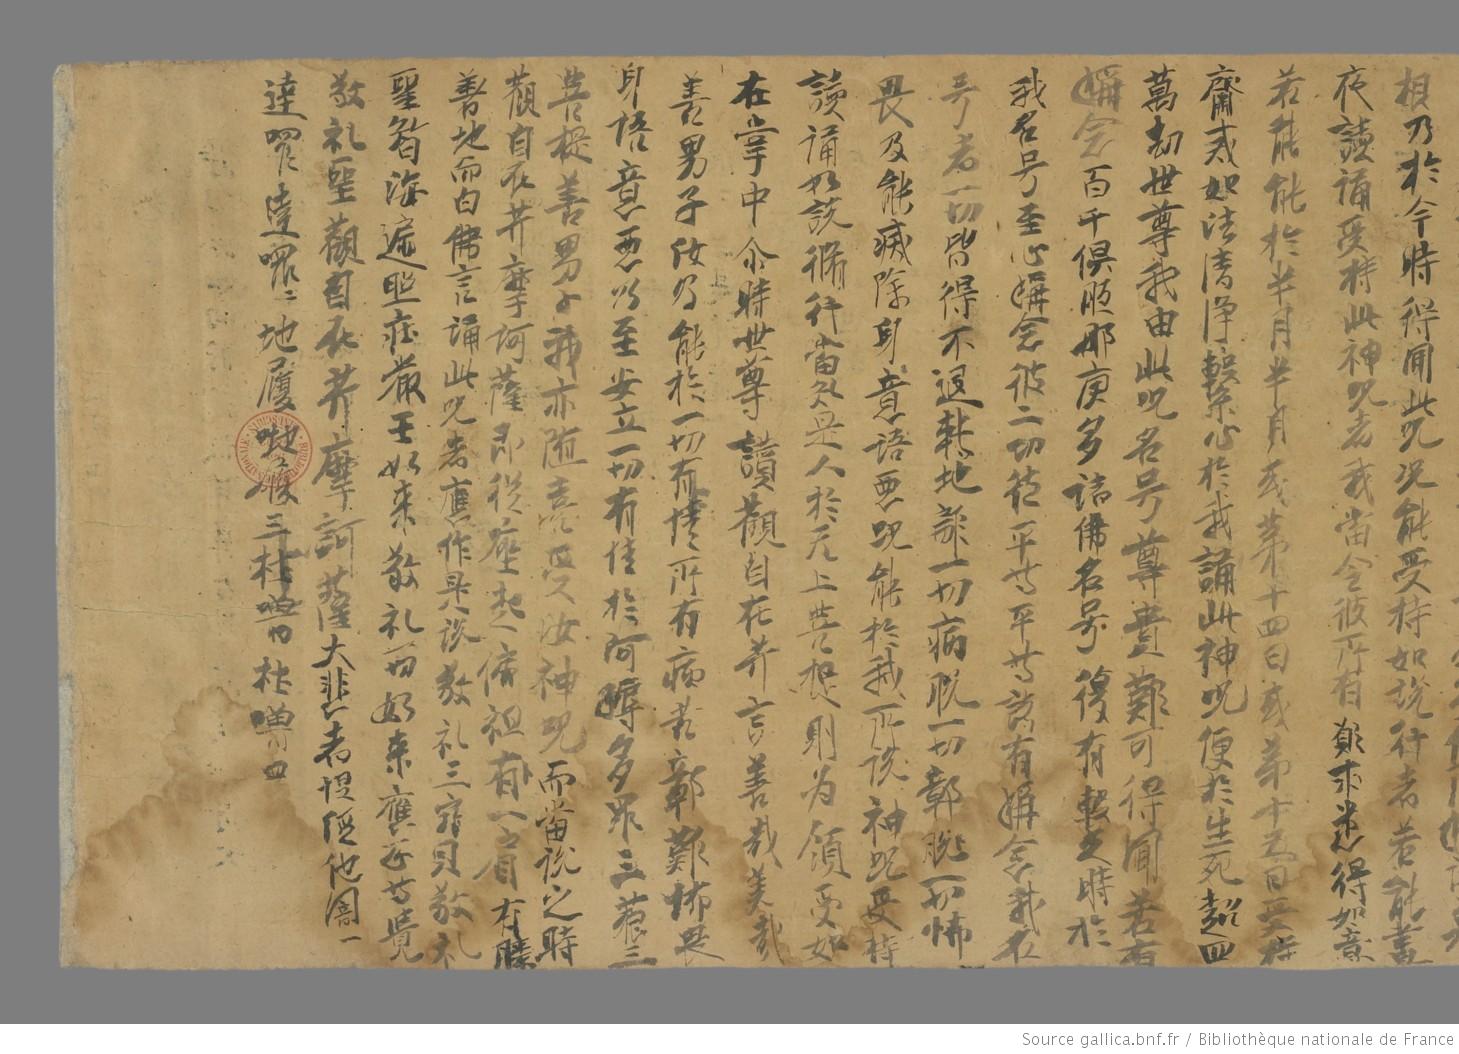 相乃於今時得聞此咒况能受持如說行者若能書
夜讀誦受持此神咒者我當令彼所有願求悉得如意
若能能於半月半月或第十四日或第十五日受持
齋戒如法清淨繫心於我誦此神咒便於生死超四
萬劫世尊我由此咒名号尊貴難可得聞若有
稱念百千俱胝那庾多諸佛名号復有暫之時於
我名号至心稱念彼二功德平等平等諸有稱念我名
号者一切皆得不退轉地離一切病脫一切鄣脫一切怖
畏及能滅除身意語惡况能於我所說神咒受持
讀誦如說循行當知是人於无上菩提則为領受如
在掌中尒時世尊讚觀自在菩言善哉美哉
善男子汝乃能於一切有情所有病苦鄣難怖畏
身語意惡以至安立一切有情於阿耨多羅三藐三
菩提善男子我亦隨喜受汝神咒而當說之時
觀自在菩摩訶薩即從座起偏袒右一肩有膝
著地而白佛言誦此咒者應作是說敬礼三寶敬礼
聖智海遍照庄嚴王如來敬礼一切如來應正等覺
敬礼聖觀自在菩摩訶薩大悲者怛姪他闇一
達囉達囉二地履地履三杜嚕杜嚕四